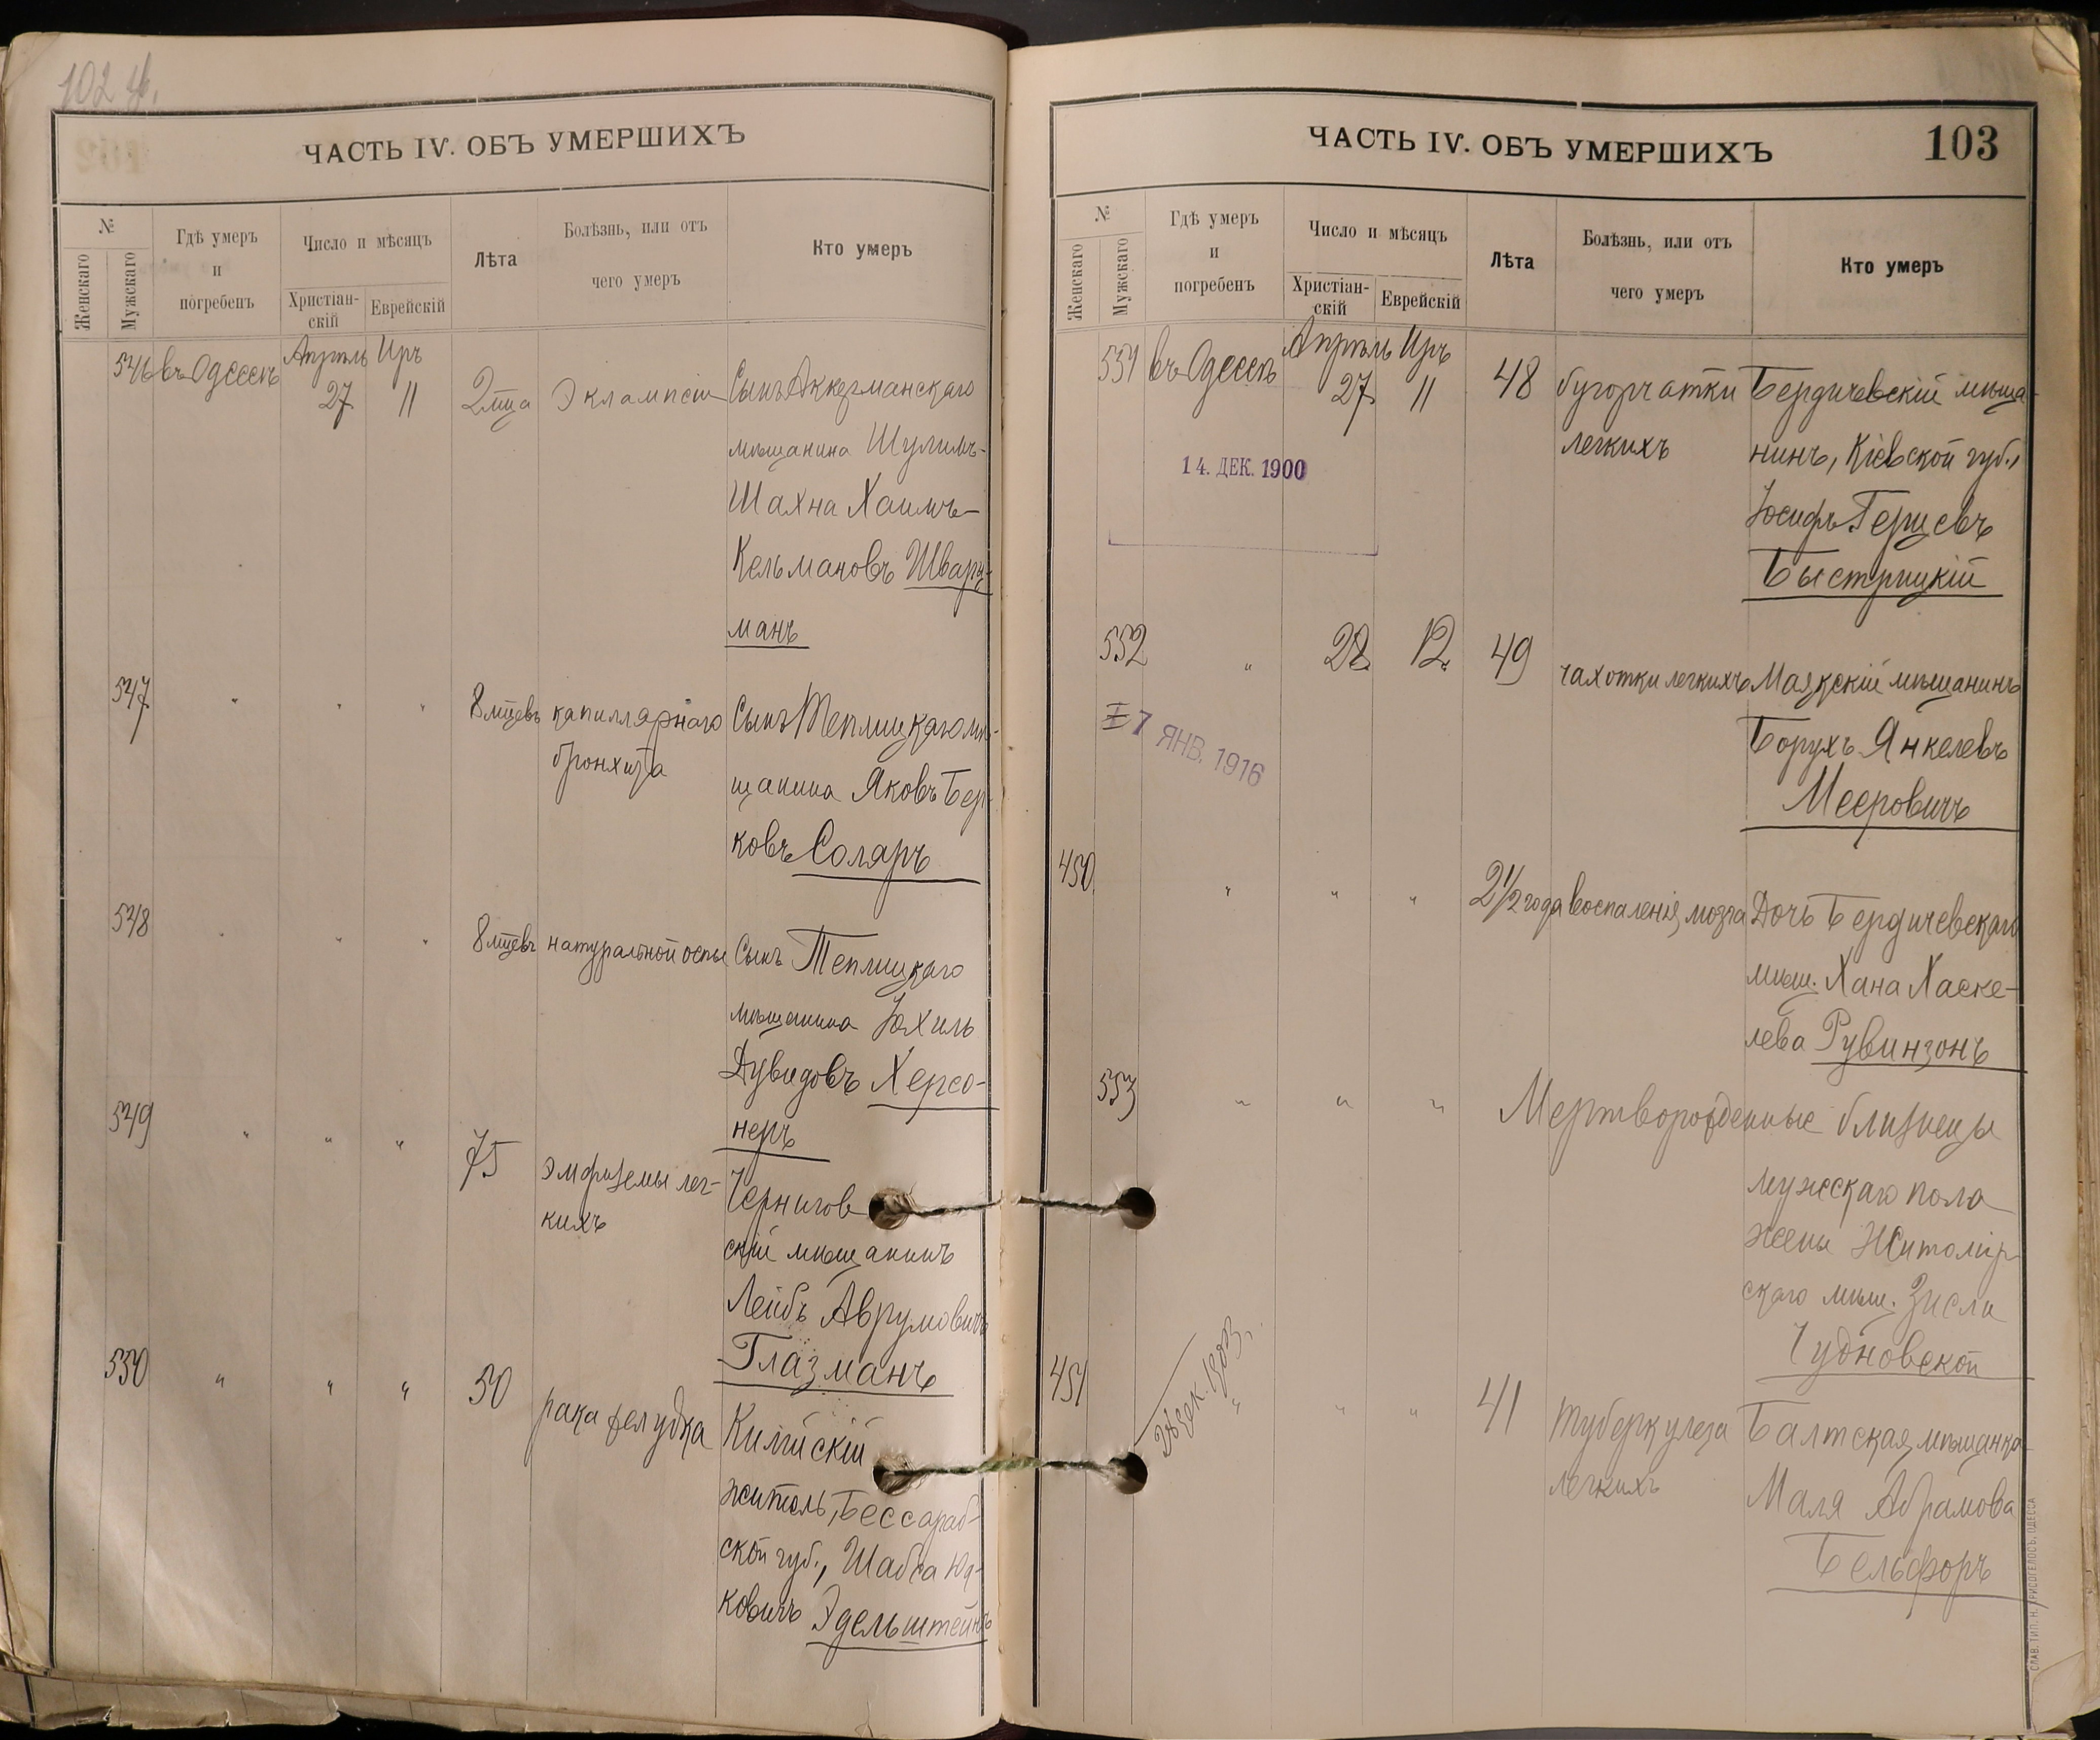 ЧАСТЬ IV. ОБЪ УМЕРШИХЪ
№
Женскаго
Мужскаго
Гдѣ умеръ
и
погребенъ
Число и мѣсяцъ
Христіан-
скій
Еврейскій
Лѣта
Болѣзнь, или отъ
чего умеръ
Кто умеръ
546 въ Одессѣ Апрѣль 27 Иръ 11 2 мца Эклампсіи Сынъ Аккерманскаго
мѣщанина Шулимъ-
Шахна Хаимъ-
Кельмановъ Шварц-
манъ
547 " " " 8 мцевъ капиллярнаго Сынъ Теплицкаго мѣ-
бронхита
щанина Яковъ Бер-
ковъ Соляръ
548 " " " 8 мцевъ натуральной оспы Сынъ Теплицкаго
мѣщанина Іохиль
Дувидовъ Херсо-
неръ
549 " " " 75 эмфиземы лег-
кихъ
Чернигов
скій мѣщанинъ
Лейбъ Аврумовичъ
Глазманъ
550 " " " 50 рака желудка Килійскій
житель, Бессараб-
ской губ., Шабса Юд-
ковичъ Эдельштейнъ
ЧАСТЬ IV. ОБЪ УМЕРШИХЪ
103
№
Женскаго
Мужскаго
Гдѣ умеръ
и
погребенъ
Число и мѣсяцъ
Христіан-
скій
Еврейскій
Лѣта
Болѣзнь, или отъ
чего умеръ
Кто умеръ
551 въ Одессѣ Апрѣль 27 Иръ 11 48 бугорчатки Бердичевскій мѣща-
легкихъ нинъ, Кіевской губ.,
14. ДЕК. 1900
Іосифъ Герцевъ
Быстрицкій
552 " 28 12 49 чахотки легкихъ Маякскій мѣщанинъ
7 ЯНВ. 1916
Борухъ Янкелевъ
Мееровичъ
450 " " " 2½ года воспаленія мозга Дочь Бердичевскаго
мѣщ. Хана Хаске-
лева Рувинзонъ
553 " " " Мертворожденные близнецы
мужескаго пола
жены Житомір-
скаго мѣщ. Зисли
Чудновской
451 " " " 41 туберкулеза Балтская мѣщанка
28 дек. 1903.
легкихъ Маля Абрамова
Бельфоръ